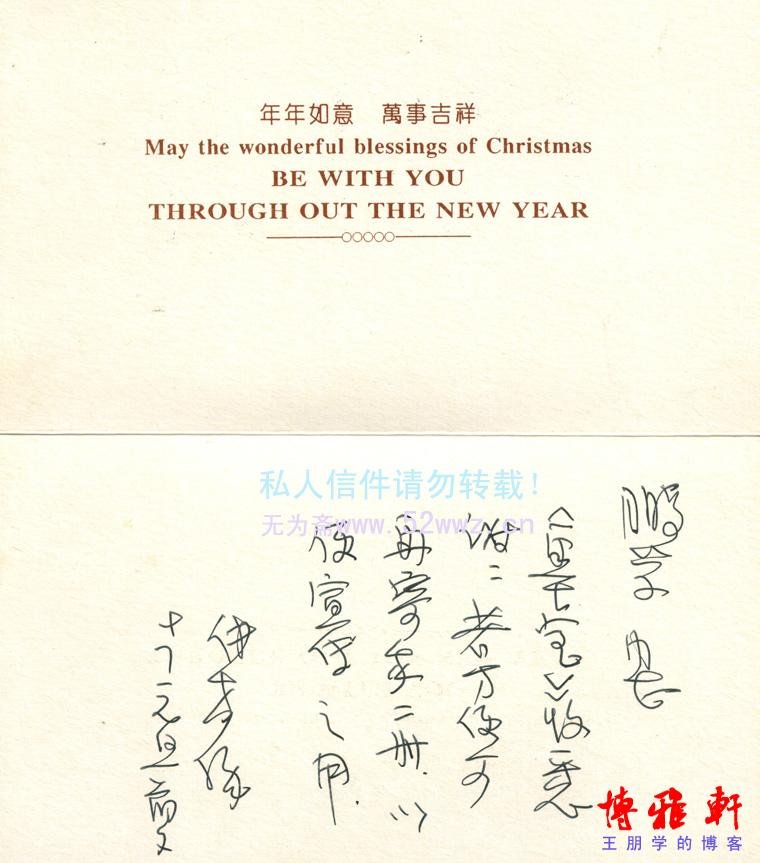 年年如意 萬事吉祥
May the wonderful blessings of Christmas
BE WITH YOU
THROUGH OUT THE NEW YEAR
私人信件请勿转载!
无为斋www.52wwz.cn
鹏学
收悉
谢〻若方便可
再寄来二册.以
便宣传之用.
元旦前夕
博雅軒
王朋学的博客